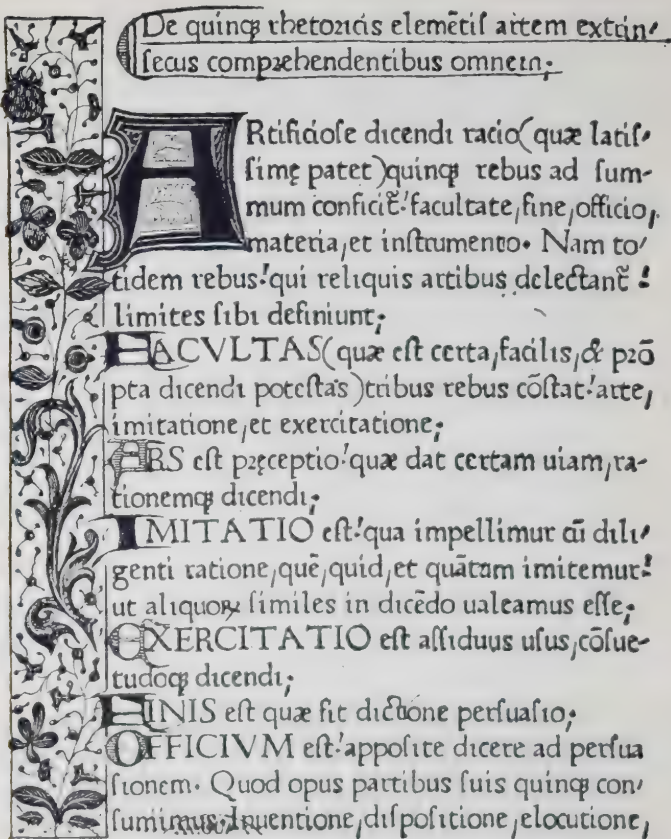 De quinqꝫ rhetoricis elemētiſ artem extrin⸗
ſecus comprehendentibus omnem;
ARtificioſe dicendi racio(quæ latiſ⸗
ſimę patet)quinqꝫ rebus ad ſum-
mum conficit̄: facultate,fine,officio,
materia,et inſtrumento. Nam to⸗
tidem rebus: qui reliquis artibus delectant̄:
limites ſibi definiunt;
FACVLTAS(quæ eſt certa,facilis,& prō
pta dicendi poteſtas)tribus rebus cōſtat: arte,
imitatione,et exercitatione;
ARS eſt pręceptio: quæ dat certam uiam,ra-
tionemqꝫ dicendi;
IMITATIO eſt: qua impellimur cū dili⸗
genti ratione,quē,quid,et quātum imitemur:
ut aliquoꝝ ſimiles in dicēdo ualeamus eſſe;
EXERCITATIO eſt aſſiduus uſus,cōſue-
tudoqꝫ dicendi;
FINIS eſt quæ fit dictione perſuaſio;
OFFICIVM eſt: appoſite dicere ad perſua
ſionem. Quod opus partibus ſuis quinqꝫ con⸗
ſumimus: Inuentione,diſpoſitione,elocutione,